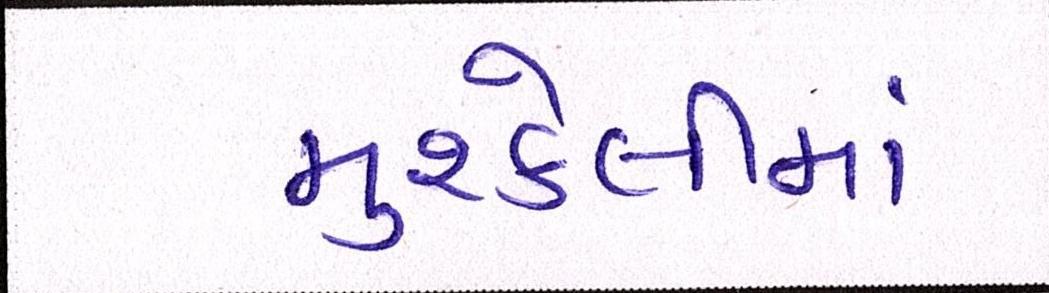 મુશ્કેલીમાં